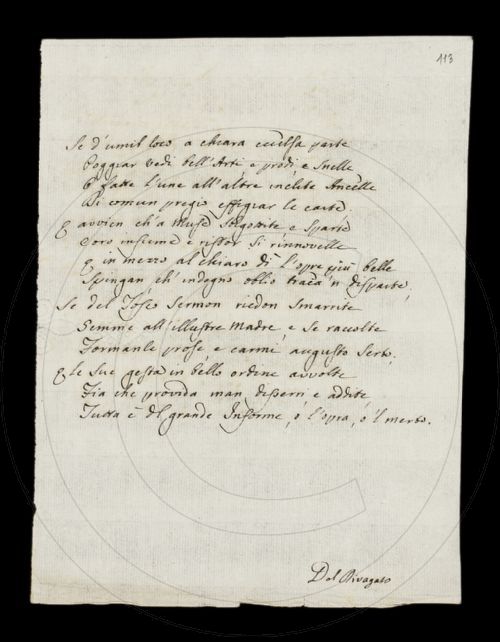 113
Se d'umil loco a chiara eccelsa parte
Poggiar vedi bell'Arti e prodi, e snelle
E fatte l'une all'altre inclite Ancelle
Di comun pregio effigiar le carte
E avvien ch'a Muse e sparte
Loro insieme e ristor si rinnovelle
E in mezzo al chiaro dì l'opre più belle
Spingan ch'indegno oblio traea 'n disparte,
Se del Tosco Sermon riedon smarrite
Gemme all'illustre Madre, e se raccolte
Formanle prose e carmi augusto serto,
E le sue gesta in bello ordine avvolte
Fia che provida man disserri e addite
Tutto è del grande Informe, o l'opra, o 'l merto.
Del Rivagato